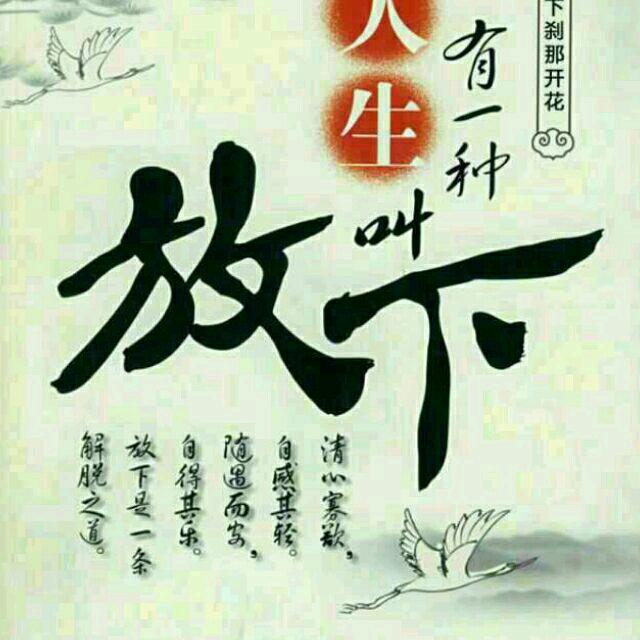 下刹那开花
人生
有一种
叫
放下
清心寡欲，
自感其轻。
随遇而安，
自得其乐。
放下是一条
解脱之道。